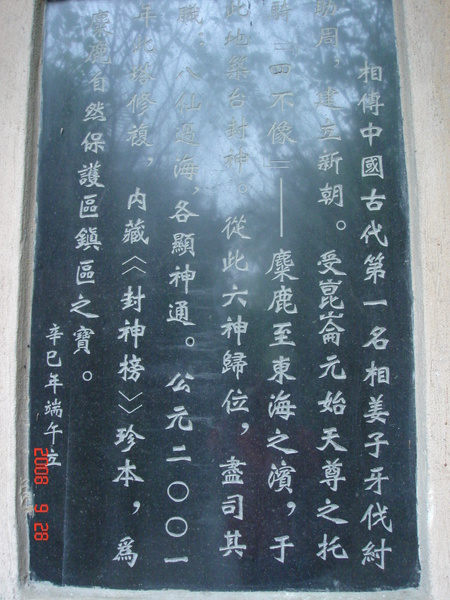 相傳中國古代第一名相姜子牙伐紂
助周，建立新朝。受崑崙元始天尊之托
騎“四不像”——麋鹿至東海之濱，于
此地築台封神。從此六神歸位，盡司其
職。八仙過海，各顯神通。公元二〇〇一
年此塔修復，內藏《封神榜》珍本，爲
麋鹿自然保護區鎮區之寶。
辛巳年端午立
2008 9 28